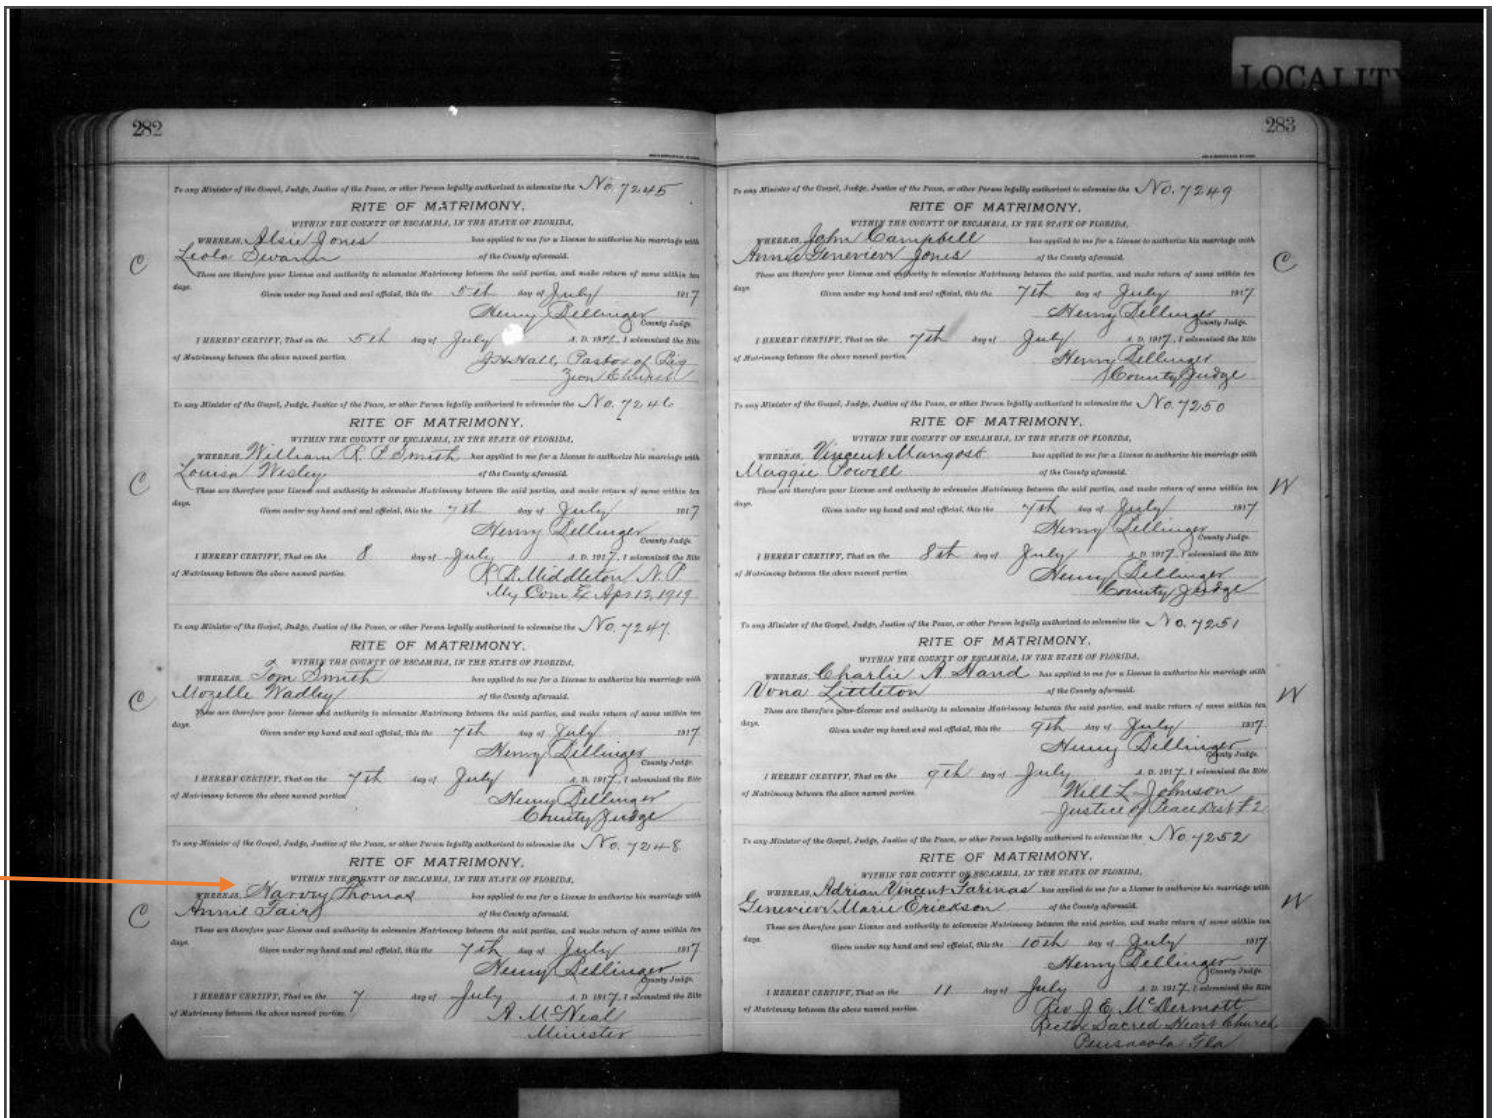 LOCALITY
282
To any Minister of the Gospel, Judge, Justice of the Peace, or other Person legally authorized to solemnize the No. 7245
RITE OF MATRIMONY,
WITHIN THE COUNTY OF ESCAMBIA, IN THE STATE OF FLORIDA,
WHEREAS, Alsie Jones has applied to me for a License to authorize his marriage with
C Leola Swann of the County aforesaid.
These are therefore your License and authority to solemnize Matrimony between the said parties, and make return of same within ten
days.
Given under my hand and seal official, this the 5th day of July 1917
Henry Bellinger
County Judge.
I HEREBY CERTIFY, That on the 5th day of July A. D. 1917, I solemnized the Rite
of Matrimony between the above named parties. J H Hall, Pastor of Big
Zion Church
To any Minister of the Gospel, Judge, Justice of the Peace, or other Person legally authorized to solemnize the No. 7246
RITE OF MATRIMONY,
WITHIN THE COUNTY OF ESCAMBIA, IN THE STATE OF FLORIDA,
WHEREAS, William R. P. Smith has applied to me for a License to authorize his marriage with
C Louisa Wesley of the County aforesaid.
These are therefore your License and authority to solemnize Matrimony between the said parties, and make return of same within ten
days.
Given under my hand and seal official, this the 7th day of July 1917
Henry Bellinger
County Judge.
I HEREBY CERTIFY, That on the 8 day of July A. D. 1917, I solemnized the Rite
of Matrimony between the above named parties. R. B. Middleton, N. P.
My Com. Ex Apr. 12, 1919
To any Minister of the Gospel, Judge, Justice of the Peace, or other Person legally authorized to solemnize the No. 7247.
RITE OF MATRIMONY,
WITHIN THE COUNTY OF ESCAMBIA, IN THE STATE OF FLORIDA,
WHEREAS, Tom Smith has applied to me for a License to authorize his marriage with
C Mozelle Wadley of the County aforesaid.
These are therefore your License and authority to solemnize Matrimony between the said parties, and make return of same within ten
days.
Given under my hand and seal official, this the 7th day of July 1917
Henry Bellinger
County Judge.
I HEREBY CERTIFY, That on the 7th day of July A. D. 1917, I solemnized the Rite
of Matrimony between the above named parties. Henry Bellinger
County Judge
To any Minister of the Gospel, Judge, Justice of the Peace, or other Person legally authorized to solemnize the No. 7248
RITE OF MATRIMONY,
WITHIN THE COUNTY OF ESCAMBIA, IN THE STATE OF FLORIDA,
WHEREAS, Harvy Thomas has applied to me for a License to authorize his marriage with
C Annie Fair of the County aforesaid.
These are therefore your License and authority to solemnize Matrimony between the said parties, and make return of same within ten
days.
Given under my hand and seal official, this the 7th day of July 1917
Henry Bellinger
County Judge.
I HEREBY CERTIFY, That on the 7 day of July A. D. 1917, I solemnized the Rite
of Matrimony between the above named parties. A. McNeal
Minister
283
To any Minister of the Gospel, Judge, Justice of the Peace, or other Person legally authorized to solemnize the No. 7249
RITE OF MATRIMONY,
WITHIN THE COUNTY OF ESCAMBIA, IN THE STATE OF FLORIDA,
WHEREAS, John Campbell has applied to me for a License to authorize his marriage with
Annie Genevieve Jones of the County aforesaid. C
These are therefore your License and authority to solemnize Matrimony between the said parties, and make return of same within ten
days.
Given under my hand and seal official, this the 7th day of July 1917
Henry Bellinger
County Judge.
I HEREBY CERTIFY, That on the 7th day of July A. D. 1917, I solemnized the Rite
of Matrimony between the above named parties. Henry Bellinger
County Judge
To any Minister of the Gospel, Judge, Justice of the Peace, or other Person legally authorized to solemnize the No. 7250
RITE OF MATRIMONY,
WITHIN THE COUNTY OF ESCAMBIA, IN THE STATE OF FLORIDA,
WHEREAS, Vincent has applied to me for a License to authorize his marriage with
Maggie Powell of the County aforesaid.
These are therefore your License and authority to solemnize Matrimony between the said parties, and make return of same within ten W
days.
Given under my hand and seal official, this the 7th day of July 1917
Henry Bellinger
County Judge.
I HEREBY CERTIFY, That on the 8th day of July A. D. 1917, I solemnized the Rite
of Matrimony between the above named parties. Henry Bellinger
County Judge
To any Minister of the Gospel, Judge, Justice of the Peace, or other Person legally authorized to solemnize the No. 7251
RITE OF MATRIMONY,
WITHIN THE COUNTY OF ESCAMBIA, IN THE STATE OF FLORIDA,
WHEREAS, Charlie A Hand has applied to me for a License to authorize his marriage with
Vona Littleton of the County aforesaid. W
These are therefore your License and authority to solemnize Matrimony between the said parties, and make return of same within ten
days.
Given under my hand and seal official, this the 9th day of July 1917
Henry Bellinger
County Judge.
I HEREBY CERTIFY, That on the 9th day of July A. D. 1917, I solemnized the Rite
of Matrimony between the above named parties. Will L. Johnson
Justice of Peace Dist #2
To any Minister of the Gospel, Judge, Justice of the Peace, or other Person legally authorized to solemnize the No. 7252
RITE OF MATRIMONY,
WITHIN THE COUNTY OF ESCAMBIA, IN THE STATE OF FLORIDA,
WHEREAS, Adrian Vincent Farinas has applied to me for a License to authorize his marriage with
Genevieve Marie Erickson of the County aforesaid. W
These are therefore your License and authority to solemnize Matrimony between the said parties, and make return of same within ten
days.
Given under my hand and seal official, this the 10th day of July 1917
Henry Bellinger
County Judge.
I HEREBY CERTIFY, That on the 11 day of July A. D. 1917, I solemnized the Rite
of Matrimony between the above named parties. Rev J. E. McDermott
Rector Sacred Heart Church,
Pensacola Fla